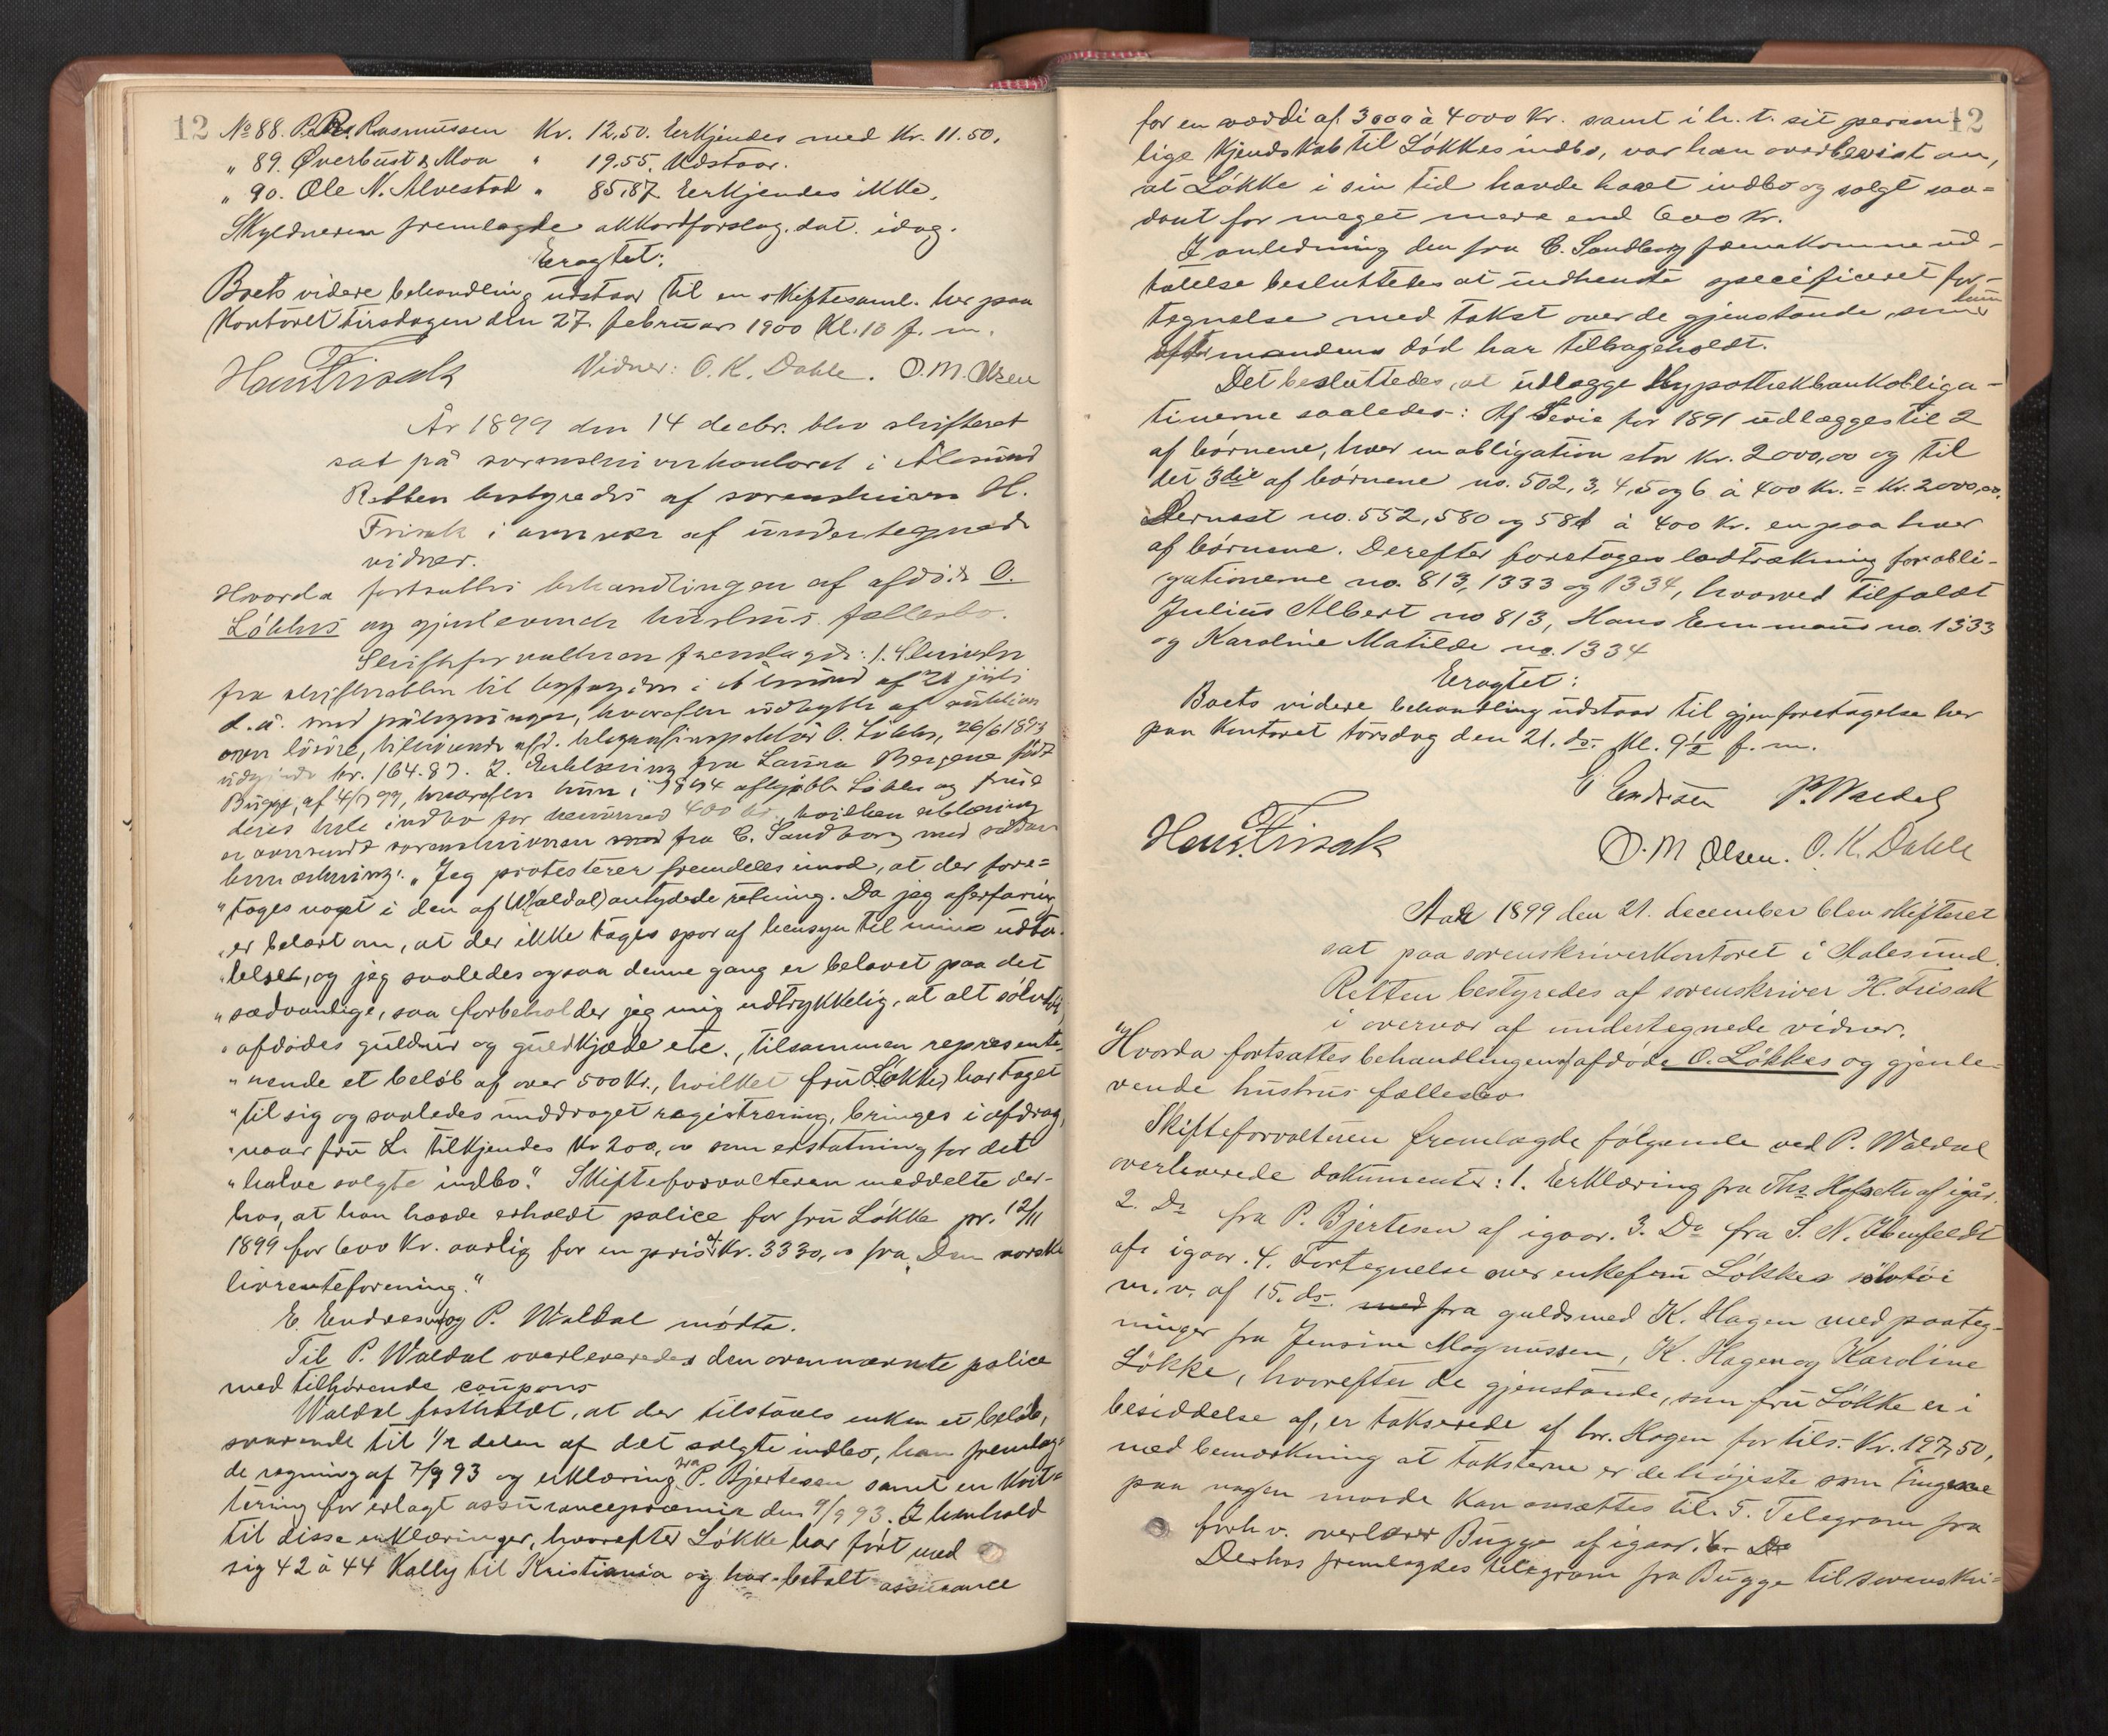 12
No 88. P. R. Rasmussen Kr. 12.50. Erkjendes med Kr. 11.50.
" 89. Øverbust & Moa " 19.55. Udstaar.
" 90. Ole N. Alvestad " 85.87. Erkjendes ikke.
Skyldneren fremlagde akkordforslag dat. idag.
Eragtet:
Boets videre behandling udstaar til en skiftesaml. her paa
Kontoret tirsdagen den 27. februar 1900 Kl. 10 f. m.
Hans Frisak Vidner: O. K. Dahle. O. M. Olsen
År 1899 den 14 decbr. blev skifteret
sat på sorenskriverkontoret i Ålesund
Retten bestyredes af sorenskriver H.
Frisak i overvær af undertegnede
vidner.
Hvorda fortsattes behandlingen af afdøde O.
Løkkes og gjenlevende hustrus fællesbo.
Skifteforvalteren fremlagde: 1. Skrivelse
fra skifteretten til byfogden i Ålesund af 21 juli
d. å. med påtegninger, hvorefter udbytte af auktion
over løsøre, tilhørende afd. telegrafinspektør O. Løkke, 26/6 1893
udgjorde kr. 164.87. 2. Erklæring fra Laura Bergene født
Bugge, af 4/7 99, hvorefter hun i 1894 afkjøbte Løkke og frue
deres hele indbo for henimod 400 kr., hvilken erklæring
er oversendt sorenskriveren fra C. Sandborg med sådan
bemærkning: "Jeg protesterer fremdeles imod, at der fore=
" tages noget i den af (Waldal) antydede retning. Da jeg af erfaring
" er belært om, at der ikke tages spor af hensyn til mine udta-
" lelser, og jeg saaledes ogsaa denne gang er belavet paa det
" sædvanlige, saa forbeholder jeg mig udtrykkelig, at alt sølvtøi,
" afdødes guldur og guldkjæde etc., tilsammen repræsente-
" rende et beløb af over 500 Kr., hvilket fru (Løkke) har taget
" til sig og saaledes unddraget registrering, bringes i afdrag,
" naar fru L. tilkjendes Kr 200,00 som erstatning for det
" halve solgte indbo." Skifteforvalteren meddelte der-
hos, at han havde erholdt police for fru Løkke pr. 12/11
1899 for 600 Kr. aarlig for en pris af Kr. 3330,00 fra "Den norske
livrenteforening."
E. Endresen og P. Waldal mødte.
Til P. Waldal overleveredes den ovennævnte police
med tilhørende coupons
Waldal fastholdt, at der tilstaaes enken et beløb,
svarende til 1/2 delen af det solgte indbo, han fremlag=
de regning af 7/9 93 og erklæring fra P. Bjertesen samt en Kvit=
tering for erlagt assurancepræmie den 9/9 93. I henhold
til disse erklæringer, hvorefter Løkke har ført med
sig 42 à 44 Kolly til Kristiania og har betalt assurance
12
for en værdi af 3000 à 4000 Kr. samt i h. t. sit person-
lige Kjendskab til Løkkes indbo, var han overbevist om,
at Løkke i sin tid havde havt indbo og solgt saa=
dant for meget mere end 600 Kr.
I anledning den fra C. Sandborg fremkomne ud-
talelse besluttedes at indhente specificeret for-
tegnelse med takst over de gjenstande, som hun
efter mandens død har tilbageholdt.
Det besluttedes, at udlægge Hypothekbankobliga-
tinerne saaledes: Af Serie for 1891 udlægges til 2
af børnene, hver en obligation stor Kr. 2000,00 og til
det 3die af børnene no. 502, 3, 4, 5 og 6 à 400 Kr. = Kr. 2000,00.
Dernæst no. 552, 580 og 581 à 400 Kr. en paa hver
af børnene. Derefter foretoges lodtrækning for obli-
gationerne no. 813, 1333 og 1334, hvorved tilfaldt
Julius Albert no 813, Hans Emmanus no. 1333
og Karoline Matilde no. 1334
Eragtet:
Boets videre behandling udstaar til gjenforetagelse her
paa Kontoret torsdag den 21. ds. Kl. 9 1/2 f. m.
E Endresen P. Waldal
Hans Frisak O. M Olsen. O. K. Dahle
Aar 1899 den 21. december blev skifteret
sat paa sorenskriverkontoret i Aalesund.
Retten bestyredes af sorenskriver H. Frisak
i overvær af undertegnede vidner.
Hvorda fortsattes behandlingen af afdøde O. Løkkes og gjenle-
vende hustrus fællesbo
Skifteforvalteren fremlagde følgende ved P. Waldal
overleverede dokumenter: 1. Erklæring fra Ths. Hofseth af igår.
2. Do fra P. Bjertesen af igaar. 3. Do fra S. N. Ebenfeldt
af igaar. 4. Fortegnelse over enkefru Løkkes sølvtøi
m. v. af 15. ds. med fra guldsmed K. Hagen med paateg-
ninger fra Jensine Magnussen, K. Hagen og Karoline
Løkke, hvorefter de gjenstande, som fru Løkke er i
besiddelse af, er takserede af hr. Hagen for tils. Kr. 197,50,
med bemærkning at taksterne er de høieste som tingene
paa nogen maade kan ansættes til. 5. Telegram fra
forh v. overlærer Bugge af igaar. 6. Do
Derhos fremlagdes telegram fra Bugge til sorenskri=